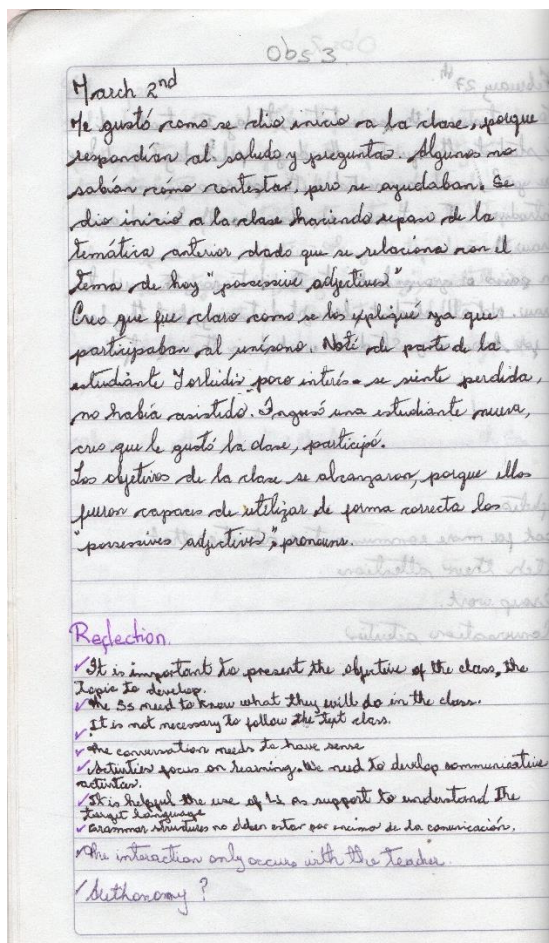 Obs 3
March 2nd
Me gustó como se dio inicio a la clase, porque
respondían al saludo y preguntas. Algunos no
sabían cómo contestar, pero se ayudaban. Se
dio inicio a la clase haciendo repaso de la
temática anterior dado que se relaciona con el
tema de hoy "possessive adjectives"
Creo que fue claro como se los expliqué ya que
participaban al unísono. Noté de parte de la
estudiante Yorleidis poco interés. se siente perdida,
no había asistido. Ingresó una estudiante nueva,
creo que le gustó la clase, participó.
Los objetivos de la clase se alcanzaron, porque ellos
fueron capaces de utilizar de forma correcta los
"possessives adjectives", pronouns.
Reflection.
✓ It is important to present the objective of the class, the
topic to develop.
✓ The Ss need to know what they will do in the class.
✓ It is not necessary to follow the text class.
✓ The conversation needs to have sense
✓ Activities focus on learning. We need to develop communicative
activities.
✓ It is helpful the use of L1 as support to understand the
target language
✓ Grammar structures no deben estar por encima de la comunicación.
✓ The interaction only occurs with the teacher.
✓ Authonomy?